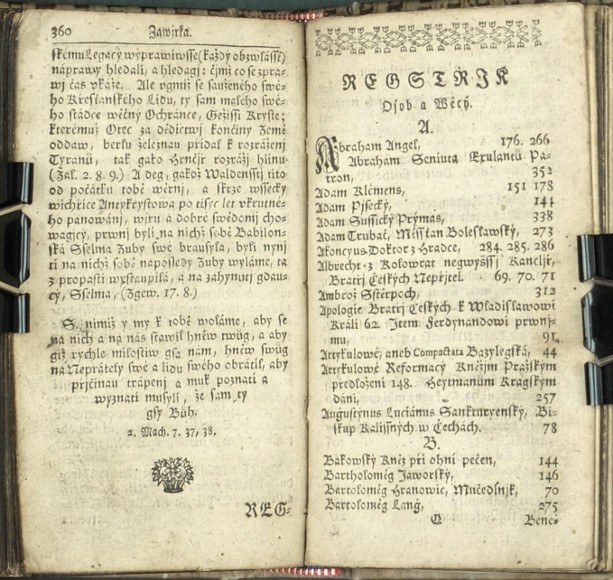 360 Zawirka.
skému Legacy wyprawiwsse (každý obzwlásstě)
náprawy hledali, a hledagj: čjmž co se zpra-
wj čas vkáže. Ale vgmiž se sauženého swé-
ho Křesťanského Lidu, ty sám malého swé-
ho stádce wěčný Ochránce, Gežjssi Kryste;
kterémuž Otec za dědictwj končiny Země
oddaw, berlu železnau přidal k rozráženj
Tyranů, tak gako Hrnčjř rozrážj hljnu
(Žal. 2. 8. 9.) A deg, gakož Waldensstj tito
od počátku tobě wěrnj, a skrze wssecky
wichřice Antykrystowa po tisýc let vkrutné-
ho panowánj, wjru a dobré swědomj cho-
wagjcý, prwnj byli na nichž sobě Babilon-
ská Sselma Zuby swé brausyla, byli nynj
ti na nichž sobě naposledy Zuby wyláme, ta
z propasti wystaupilá, a na zahynutj gdau-
cý, Sselma, (Zgew. 17. 8.)
S nimiž y my k tobě woláme, aby se
na nich a na nás stawil hněw twůg, a aby
giž rychle milostiw gsa nám, hněw swůg
na Nepřátely swé a lidu swého obrátil, aby
přjčinau trápenj a muk poznati a
wyznati musyli, že sám ty
gsy Bůh.
2. Mach. 7. 37, 38.
REG-
REGSTRJK
Osob a Wěcý.
A.
Abraham Angel, 176. 266
Abraham Seniuta Exulantů Pa-
tron, 352
Adam Kléments, 151 178
Adam Pjsecký, 141
Adam Sussický Prymas, 338
Adam Trubač, Měssťan Boleslawský, 273
Akoncyus Doktor z Hradce, 284. 285. 286
Albrecht z Kolowrat negwyššj Kancljř,
Bratřj Českých Nepřjtel. 69. 70. 71
Ambrož Sstěrpoch, 312
Apologie Bratřj Českých k Wladislawowi
Králi 62. Jtem Ferdynandowi prwnj-
mu, 91.
Artykulowé, aneb Compactata Bazylegská, 44
Artykulowé Reformacý Kněžjm Pražským
předložení 148. Heytmanům Kragským
daní, 257
Augustynus Luciánus Sankturyenský, Bi-
skup Kalissných w Čechách. 78
B.
Bakowský Kněz při ohni pečen, 144
Bartholoměg Jaworský, 146
Bartoloměg Hranowic, Mučedlnjk, 70
Bartoloměg Lang, 275
Q Bene-